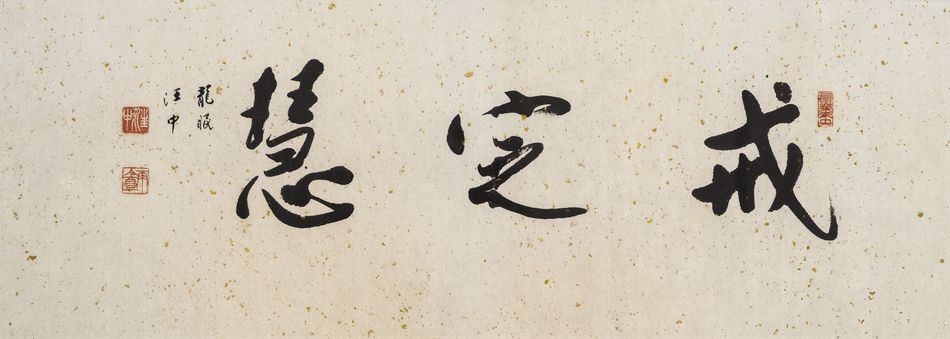 戒定慧
龍眠
汪中